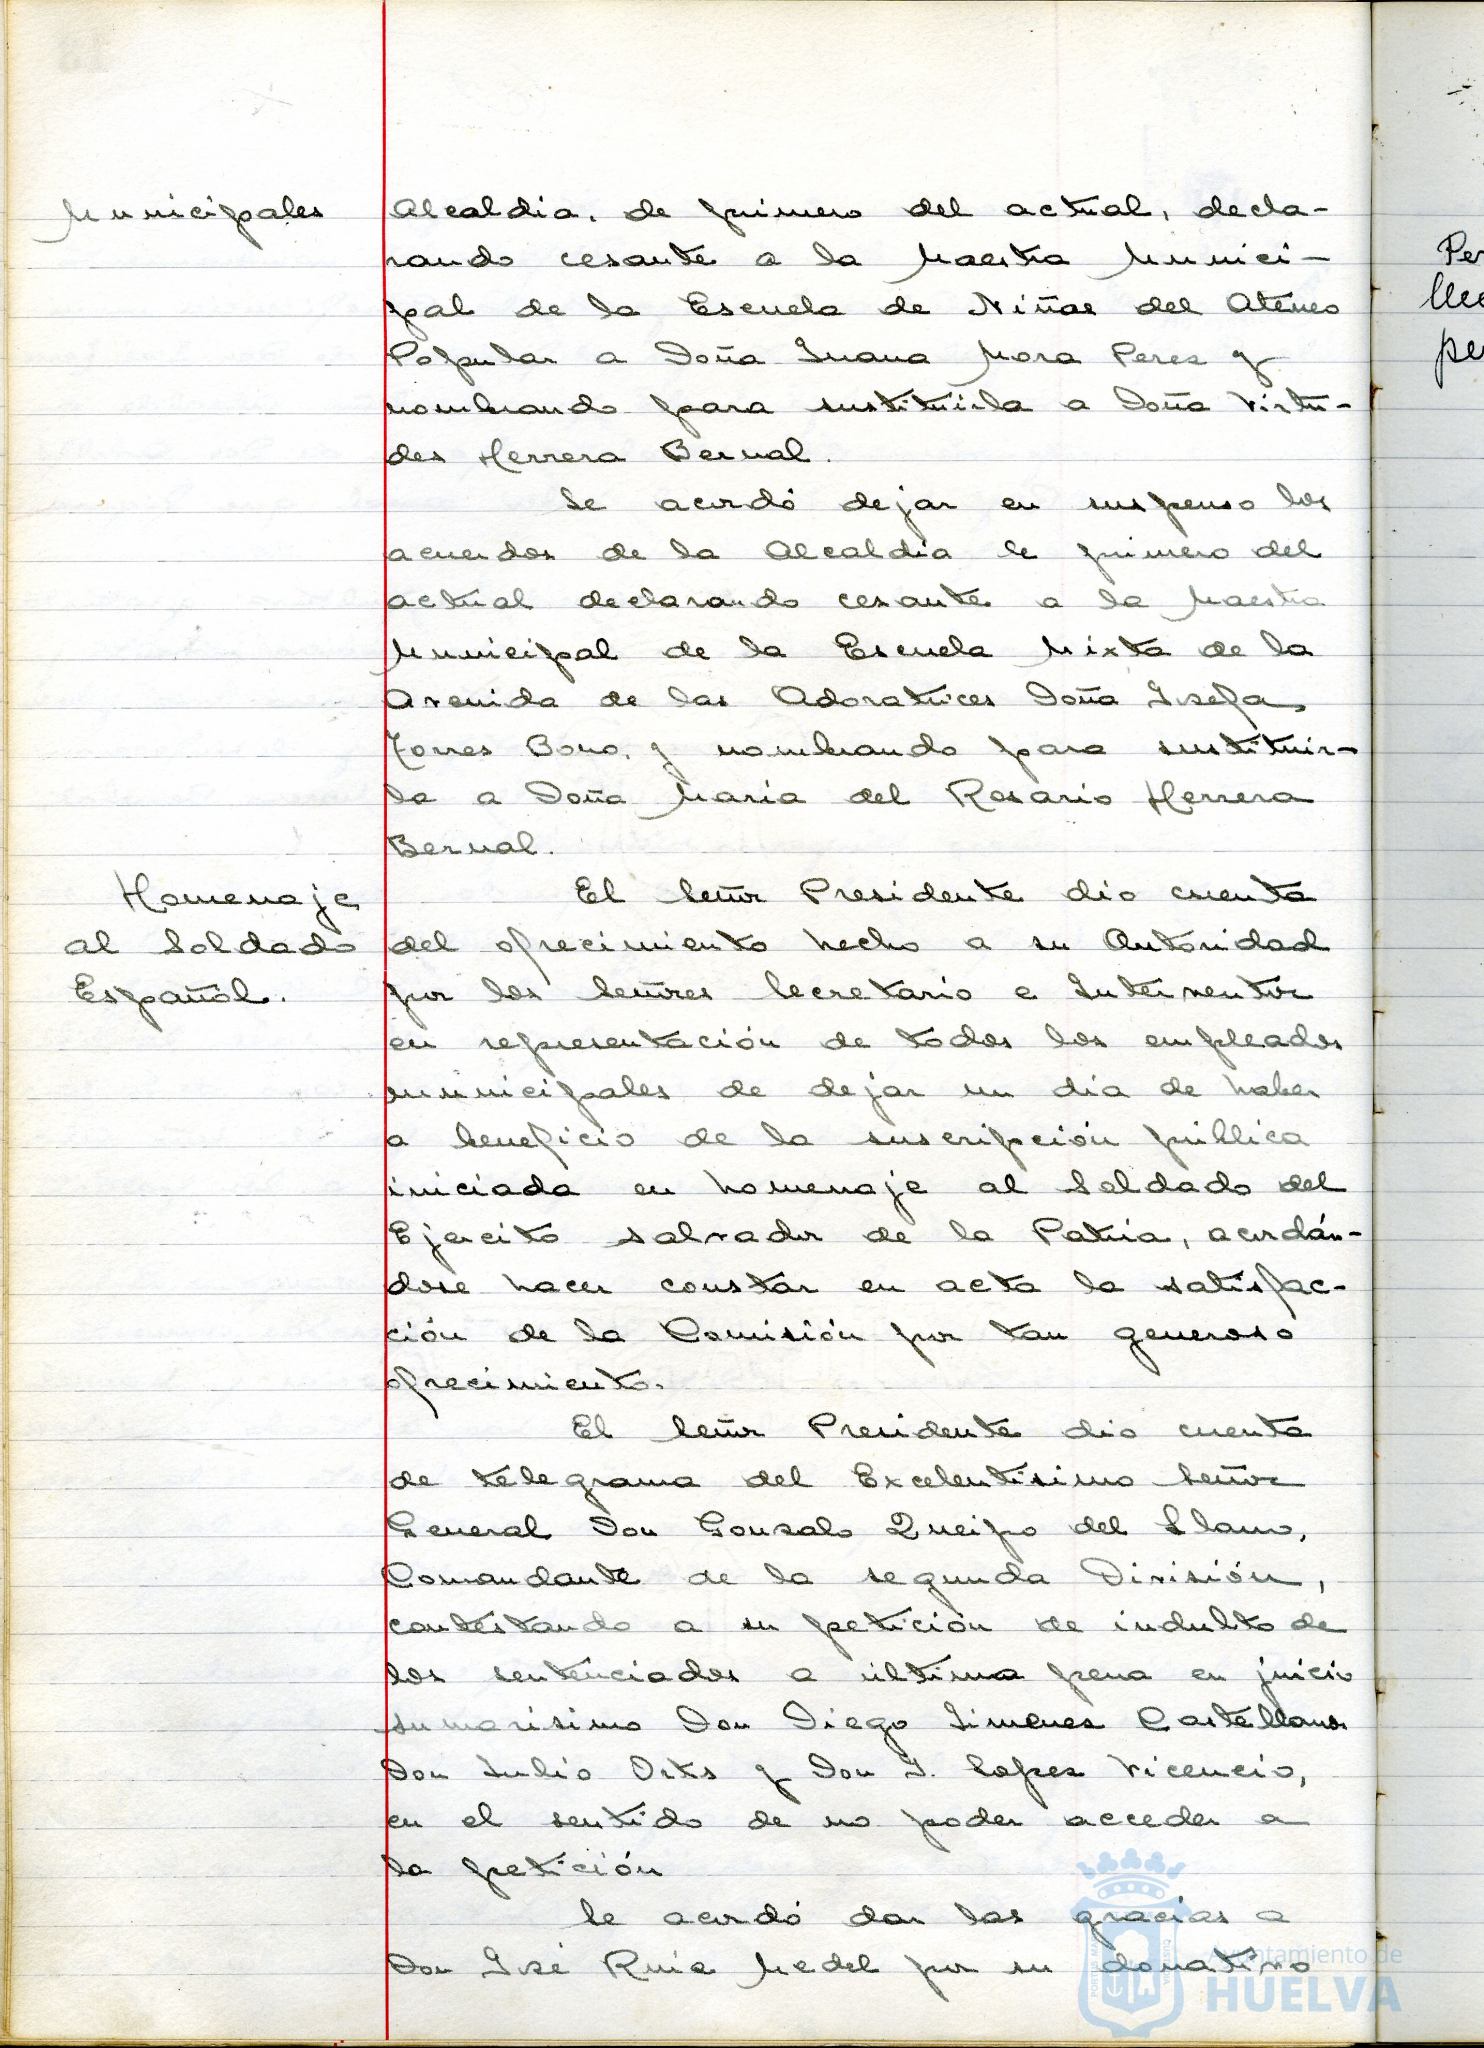 Municipales
Alcaldia, de primero del actual, decla-
rando cesante a la Maestra Munici-
pal de la Escuela de Niñas del Ateneo
Popular a Doña Juana Mora Perez y
nombrando para sustituirla a Doña Virtu-
des Herrera Bernal.
Se acordó dejar en suspenso los
acuerdos de la Alcaldia de primero del
actual declarando cesante a la Maestra
Municipal de la Escuela Mixta de la
Avenida de las Adoratrices Doña Josefa
Torres Bono, y nombrando para sustituir-
la a Doña Maria del Rosario Herrera
Bernal.
Homenaje
al Soldado
Español.
El Señor Presidente dio cuenta
del ofrecimiento hecho a su Autoridad
por los Señores Secretario e Interventor
en representación de todos los empleados
municipales de dejar un dia de haber
a beneficio de la suscripción pública
iniciada en homenaje al Soldado del
Ejercito salvador de la Patria, acordán-
dose hacer constar en acta la satisfac-
ción de la Comisión por tan generoso
ofrecimiento.
El Señor Presidente dio cuenta
de telegrama del Excelentisimo Señor
General Don Gonzalo Queipo del Llano,
Comandante de la segunda División,
contestando a su petición de indulto de
los sentenciados a última pena en juicio
sumarisimo Don Diego Jimenes Castellanos
Don Julio Orts y Don J. Lopez Vicencio,
en el sentido de no poder acceder a
la petición
Se acordó dar las gracias a
Don José Ruiz Medel por su donativo
Per
lle
pe
Ayuntamiento de
HUELVA